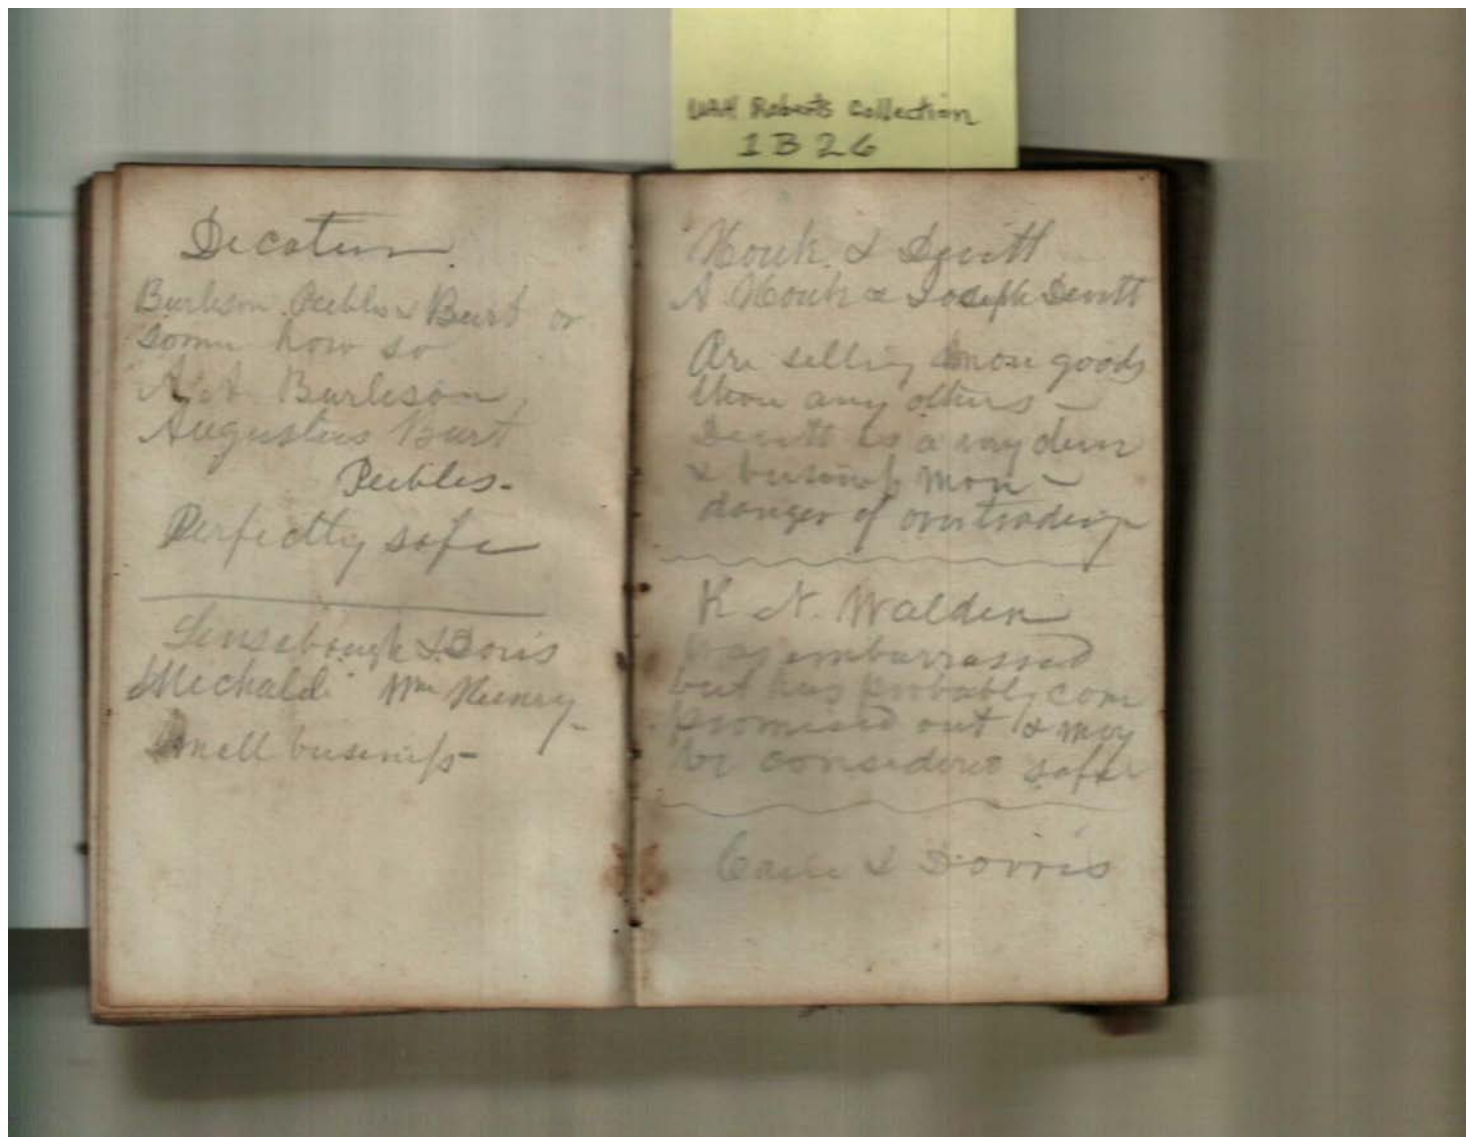 UAH Roberts Collection
1B26
Decatur.
Burleson Peebles & Burt or
some how so
A. A. Burleson
Augustus Burt
Peebles-
Perfectly safe
& Doris
Wm
Small business-
Houk & Devitt
A Houk & Joseph Devitt
Are selling more goods
than any others -
Devitt is a very
& business man -
danger of overtrading
K N. Walden
Was embarrassed
but has probably com
promised out & may
be considered safe
& Dorris